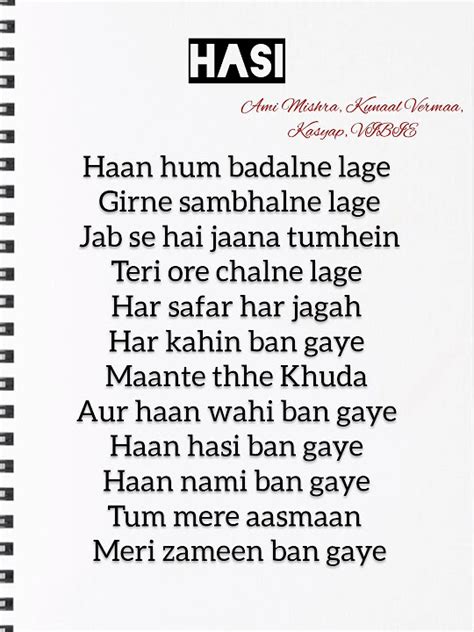 HASI
Ami Mishra, Kunaal Vermaa,
Kasyap, VIBIE
Haan hum badalne lage
Girne sambhalne lage
Jab se hai jaana tumhein
Teri ore chalne lage
Har safar har jagah
Har kahin ban gaye
Maante thhe Khuda
Aur haan wahi ban gaye
Haan hasi ban gaye
Haan nami ban gaye
Tum mere aasmaan
Meri zameen ban gaye